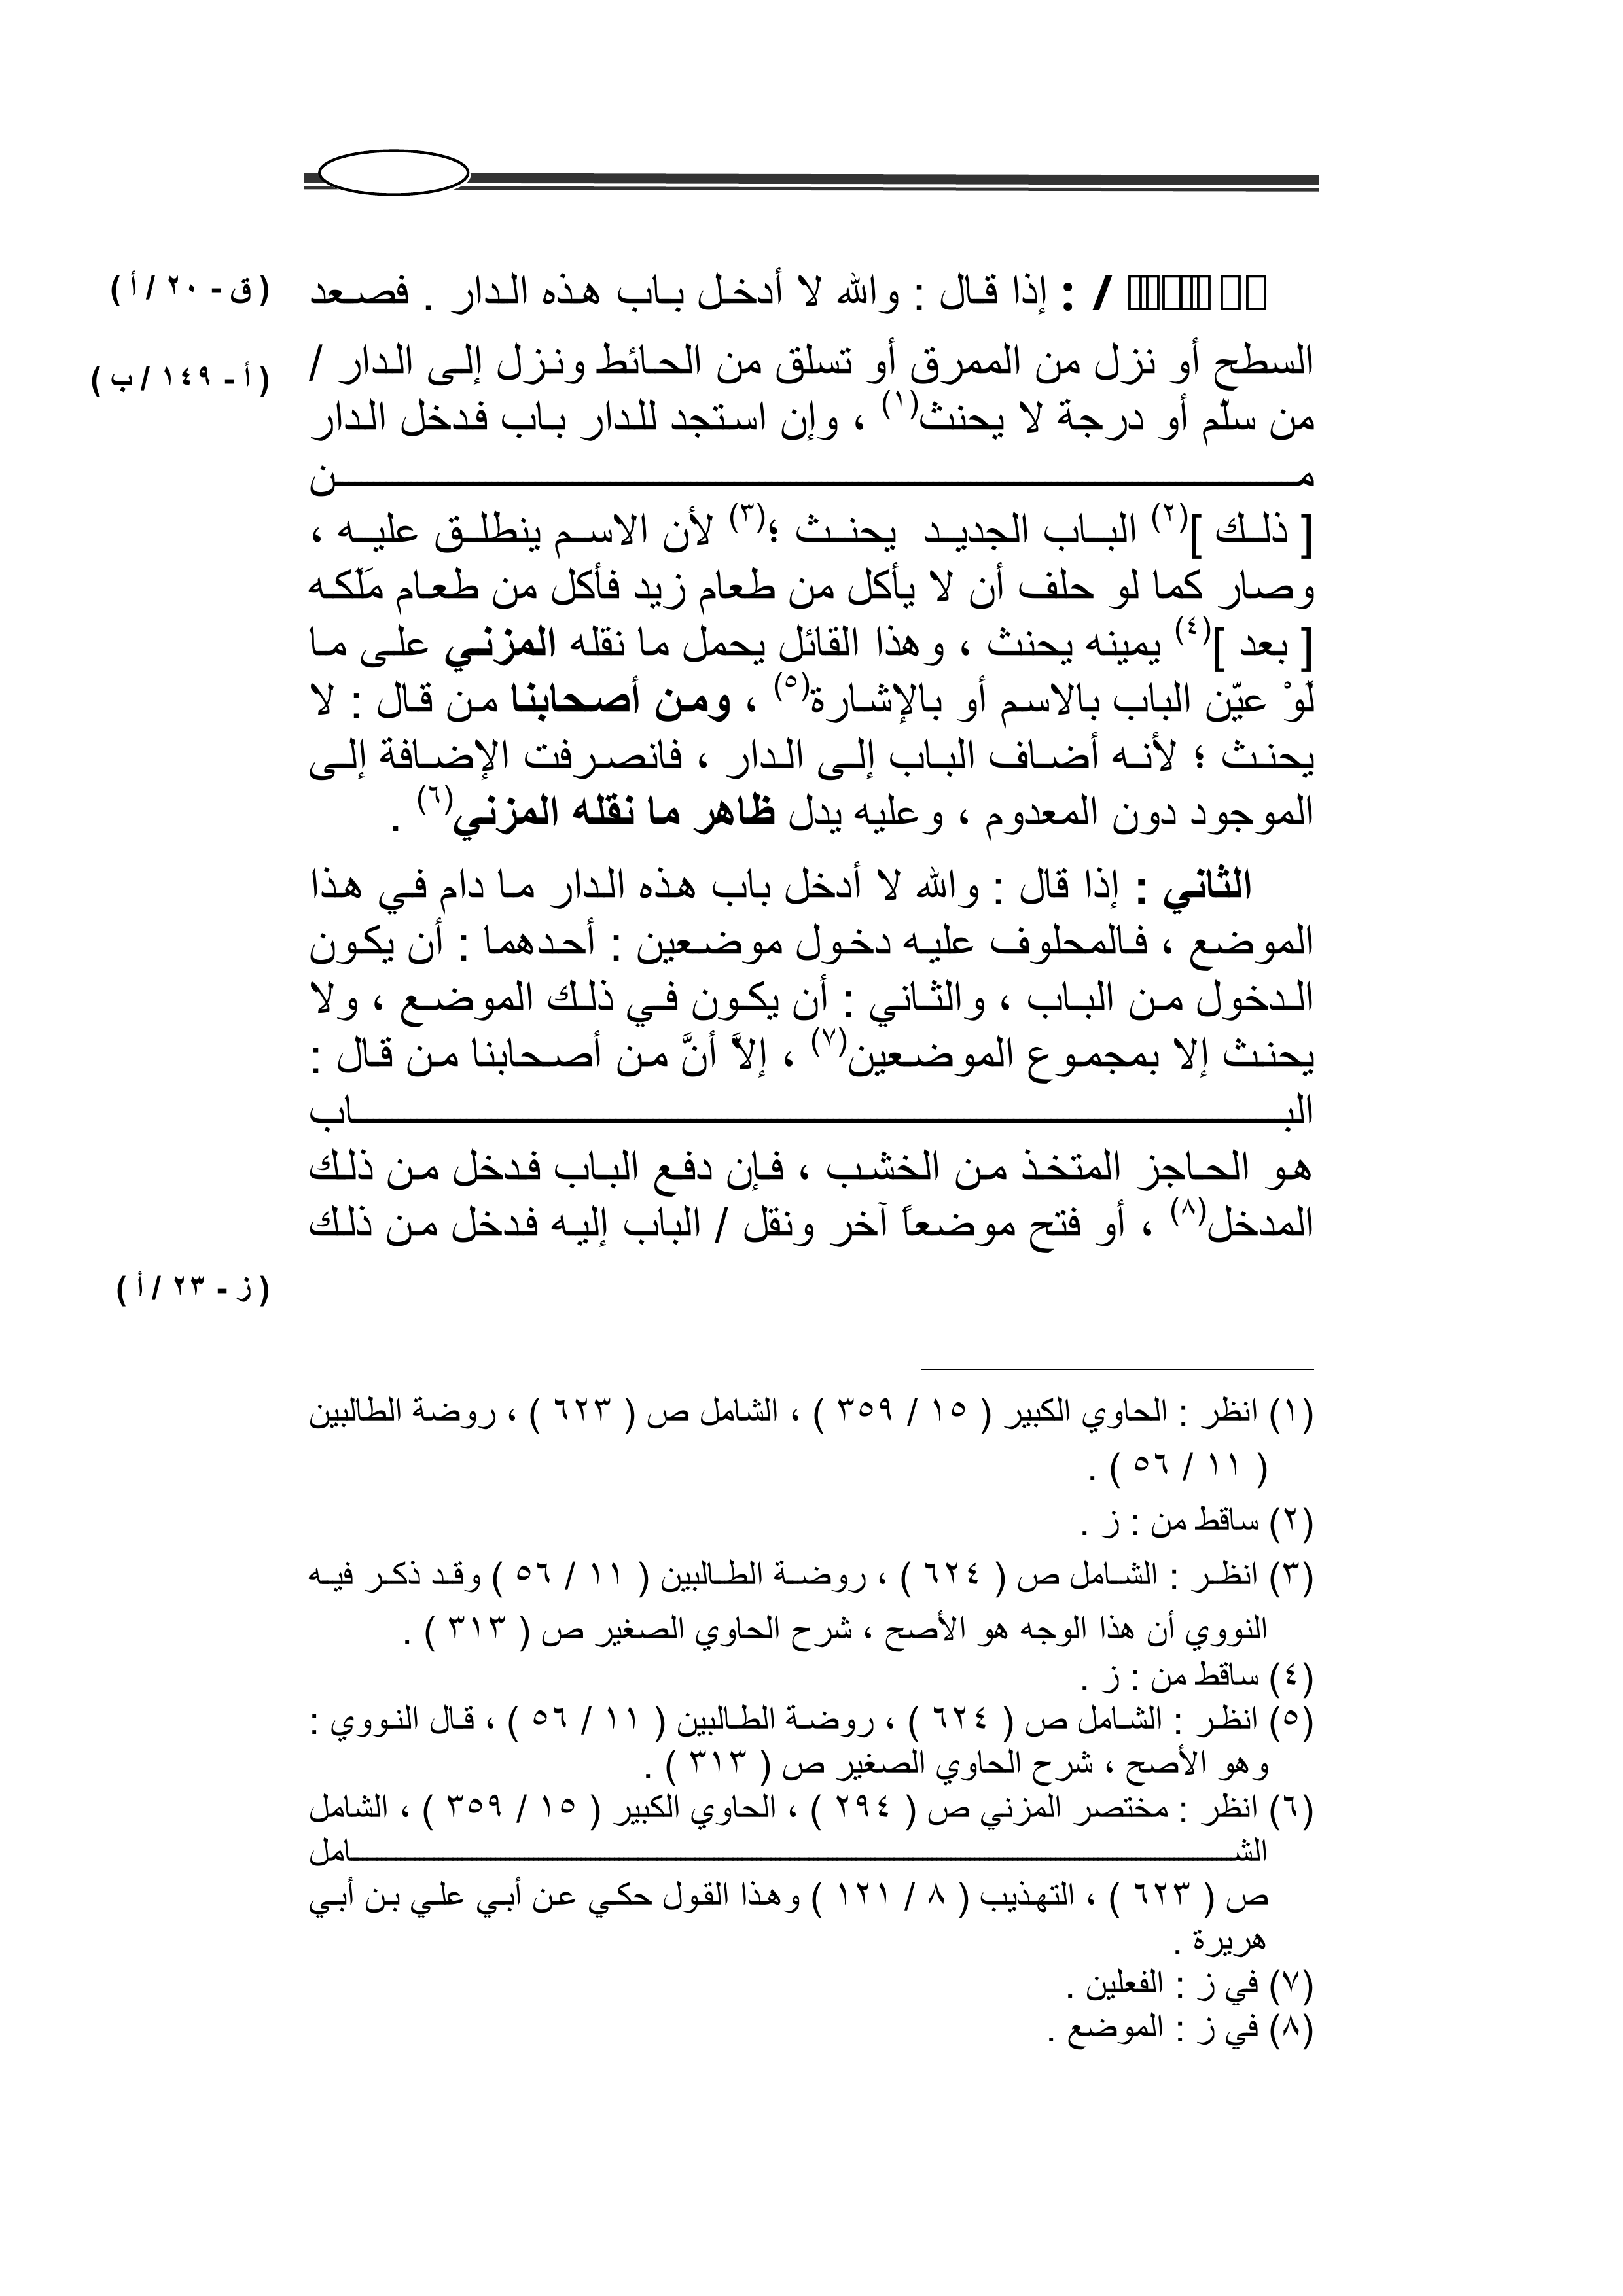 / : إذا قال : والله لا أدخل باب هذه الدار . فصعد
( ق - ٢٠ / أ )
السطح أو نزل من الممرق أو تسلق من الحائط ونزل إلى الدار /
( أ - ١٤٩ / ب )
من سلّم أو درجة لا يحنث(١) ، وإن استجد للدار باب فدخل الدار
من
[ ذلك ](٢) الباب الجديد يحنث ؛(٣) لأن الاسم ينطلق عليه ،
وصار كما لو حلف أن لا يأكل من طعام زيد فأكل من طعام مَلَكه
[ بعد ](٤) يمينه يحنث ، وهذا القائل يحمل ما نقله المزني على ما
لَوْ عيّن الباب بالاسم أو بالإشارة(٥) ، ومن أصحابنا من قال : لا
يحنث ؛ لأنه أضاف الباب إلى الدار ، فانصرفت الإضافة إلى
الموجود دون المعدوم ، وعليه يدل ظاهر ما نقله المزني(٦) .
الثاني : إذا قال : والله لا أدخل باب هذه الدار ما دام في هذا
الموضع ، فالمحلوف عليه دخول موضعين : أحدهما : أن يكون
الدخول من الباب ، والثاني : أن يكون في ذلك الموضع ، ولا
يحنث إلا بمجموع الموضعين(٧) ، إلاَّ أنَّ من أصحابنا من قال :
الباب
هو الحاجز المتخذ من الخشب ، فإن دفع الباب فدخل من ذلك
المدخل(٨) ، أو فتح موضعاً آخر ونقل / الباب إليه فدخل من ذلك
( ز - ٢٣ / أ )
(١) انظر : الحاوي الكبير ( ١٥ / ٣٥٩ ) ، الشامل ص ( ٦٢٣ ) ، روضة الطالبين
( ١١ / ٥٦ ) .
(٢) ساقط من : ز .
(٣) انظر : الشامل ص ( ٦٢٤ ) ، روضة الطالبين ( ١١ / ٥٦ ) وقد ذكر فيه
النووي أن هذا الوجه هو الأصح ، شرح الحاوي الصغير ص ( ٣١٣ ) .
(٤) ساقط من : ز .
(٥) انظر : الشامل ص ( ٦٢٤ ) ، روضة الطالبين ( ١١ / ٥٦ ) ، قال النووي :
وهو الأصح ، شرح الحاوي الصغير ص ( ٣١٣ ) .
(٦) انظر : مختصر المزني ص ( ٢٩٤ ) ، الحاوي الكبير ( ١٥ / ٣٥٩ ) ، الشامل
الشامل
ص ( ٦٢٣ ) ، التهذيب ( ٨ / ١٢١ ) وهذا القول حكي عن أبي علي بن أبي
هريرة .
(٧) في ز : الفعلين .
(٨) في ز : الموضع .